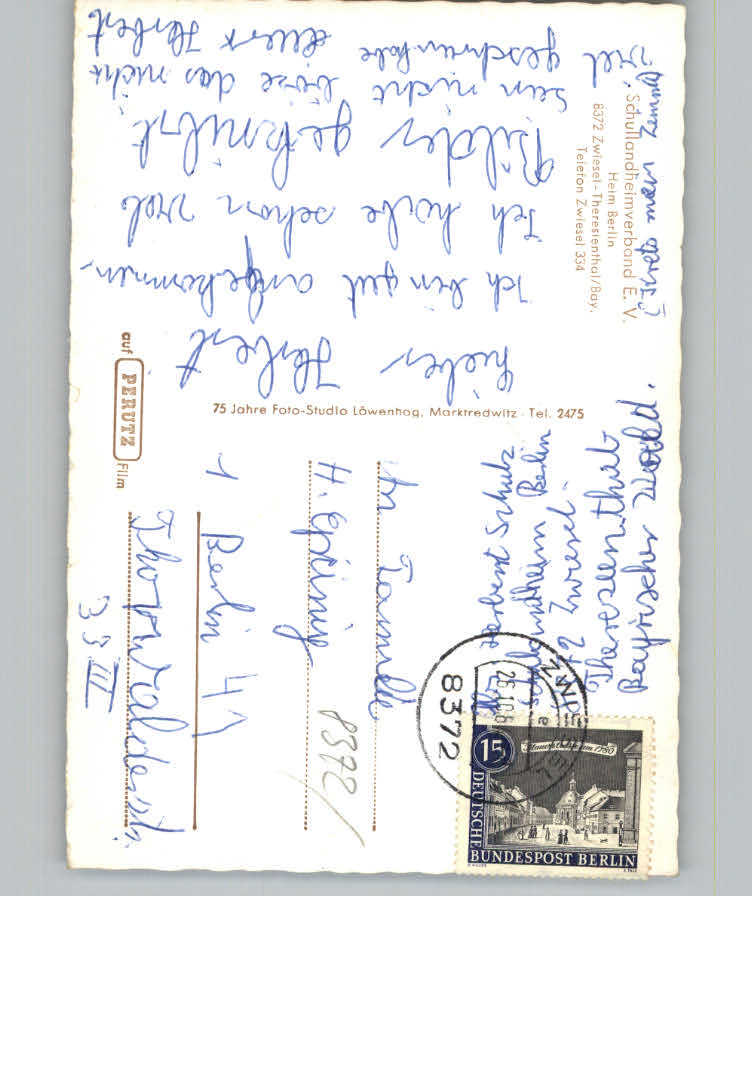 Schullandheimverband E. V.
Heim Berlin
8372 Zwiesel-Theresienthal/Bay.
Telefon Zwiesel 334
Lieber Herbert
Ich bin gut angekommen.
Ich habe schon viel
Bilder geknibst.
sein nicht böse das nicht
viel geschrieben habe
euer Herbert
75 Jahre Foto-Studio Löwenhag, Marktredwitz - Tel. 2475
auf PERUTZ Film
Herbert Schulz
Schullandheim Berlin
8372 Zwiesel.
Theresienthal
Bayrischer Wald.
An Familie
1 Berlin 41
Thorwaldsenstr.
33 III
8372
ZWIESEL
8372
15
DEUTSCHE
BUNDESPOST BERLIN